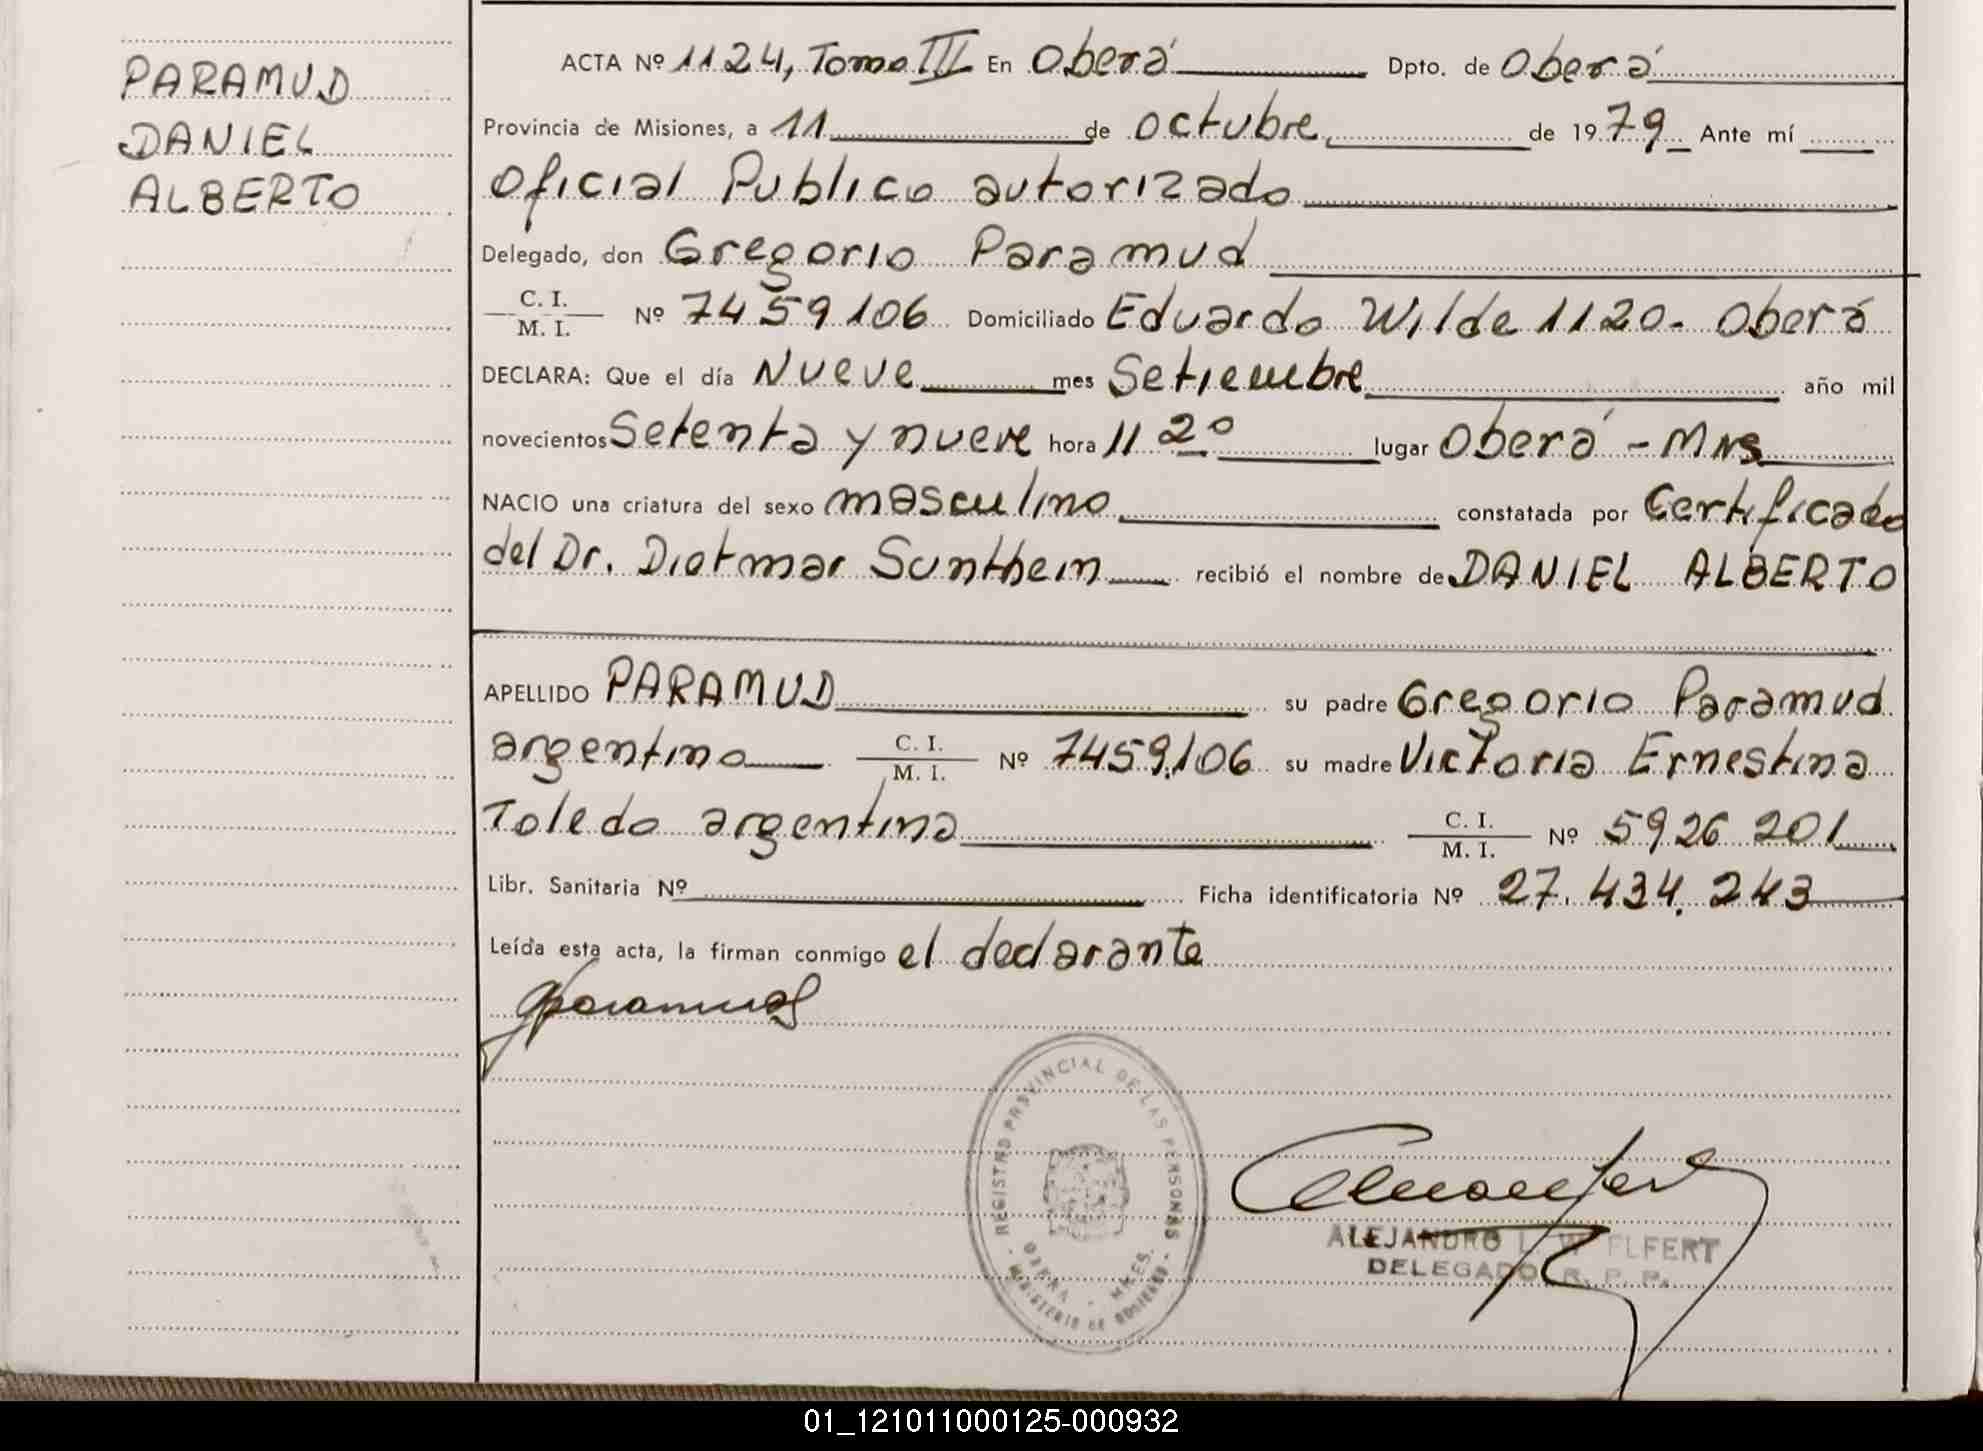 PARAMUD
DANIEL
ALBERTO
ACTA Nº 1124, Tomo III En Oberá Dpto. de Oberá
Provincia de Misiones, a 11 de octubre de 1979 Ante mí
Oficial Publico autorizado
Delegado, don Gregorio Paramud
C. I. / M. I. Nº 7459106 Domiciliado Eduardo Wilde 1120. Oberá
DECLARA: Que el día Nueve mes Setiembre año mil
novecientos Setenta y nueve hora 11 20 lugar Oberá - Mns
NACIO una criatura del sexo masculino constatada por Certificado
del Dr. Dietmar Sunthein recibió el nombre de DANIEL ALBERTO
APELLIDO PARAMUD su padre Gregorio Paramud
argentino C. I. / M. I. Nº 7459.106 su madre Victoria Ernestina
Toledo argentina C. I. / M. I. Nº 5926 201
Libr. Sanitaria Nº Ficha identificatoria Nº 27.434.243
Leída esta acta, la firman conmigo el declarante
GParamud
REGISTRO PROVINCIAL DE LAS PERSONAS
OBERA - MNES.
MINISTERIO DE GOBIERNO
ALEJANDRO L.
DELEGADO R. P. P.
01_121011000125-000932